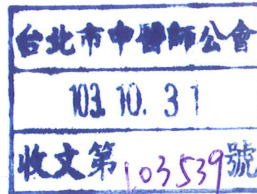 台北市中醫師公會
103.10.31
收文第103539號